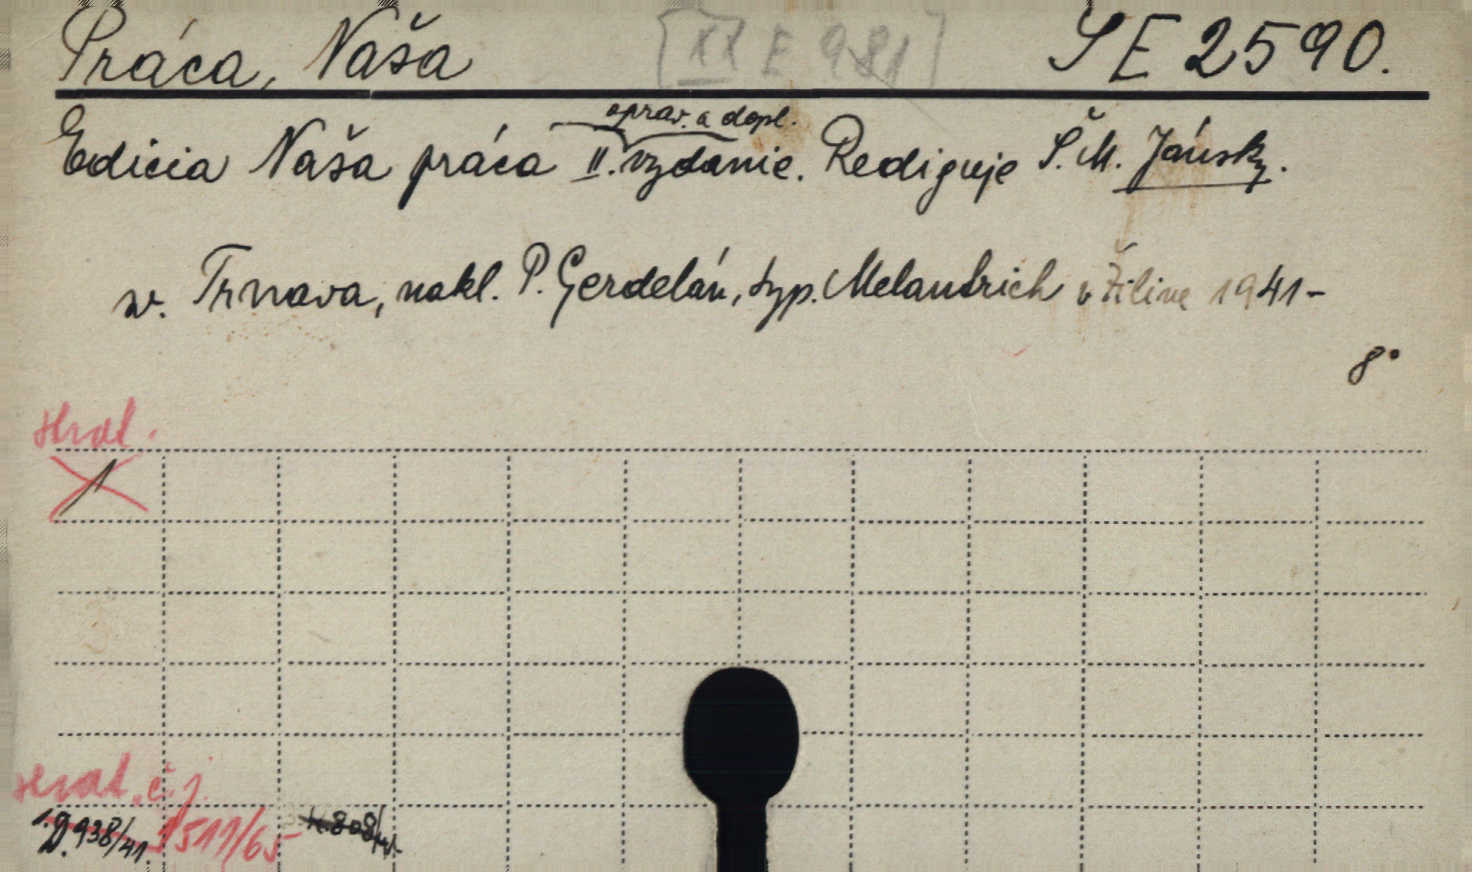 Práca, Naša [XX E 981] SE 2590.
oprav. a dopl.
Edicia Naša práca II. vydanie. Rediguje Š. M. Jánsky.
v. Trnava, nakl. P. Gerdelán, typ. Melantrich v Žiline 1941-
8°
1
č. j.
D. 938/41. 3511/65